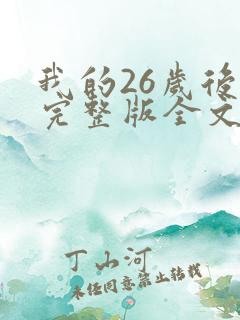 我的26岁后
完整版全文
丁山河
未经同意禁止转载